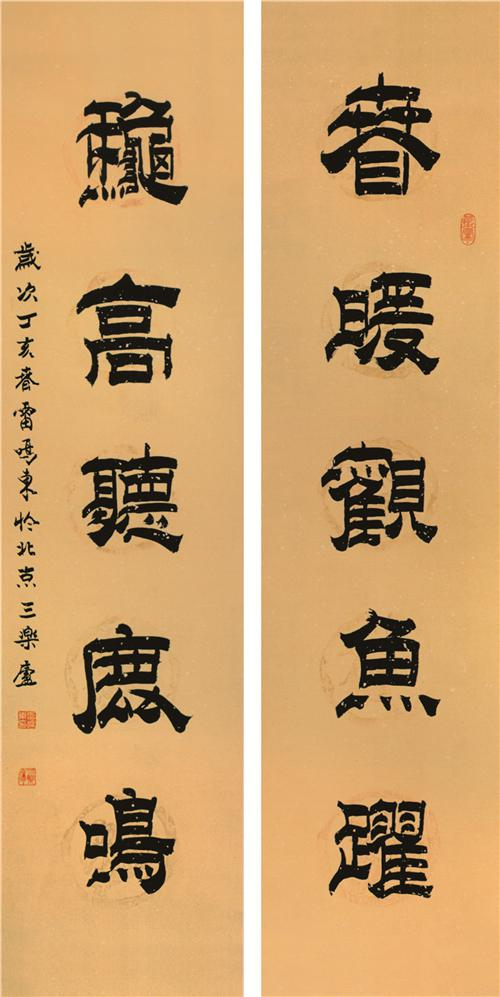 春暖觀魚躍
龝高聽鹿鳴
歲次丁亥春雷鳴東於北京三樂廬